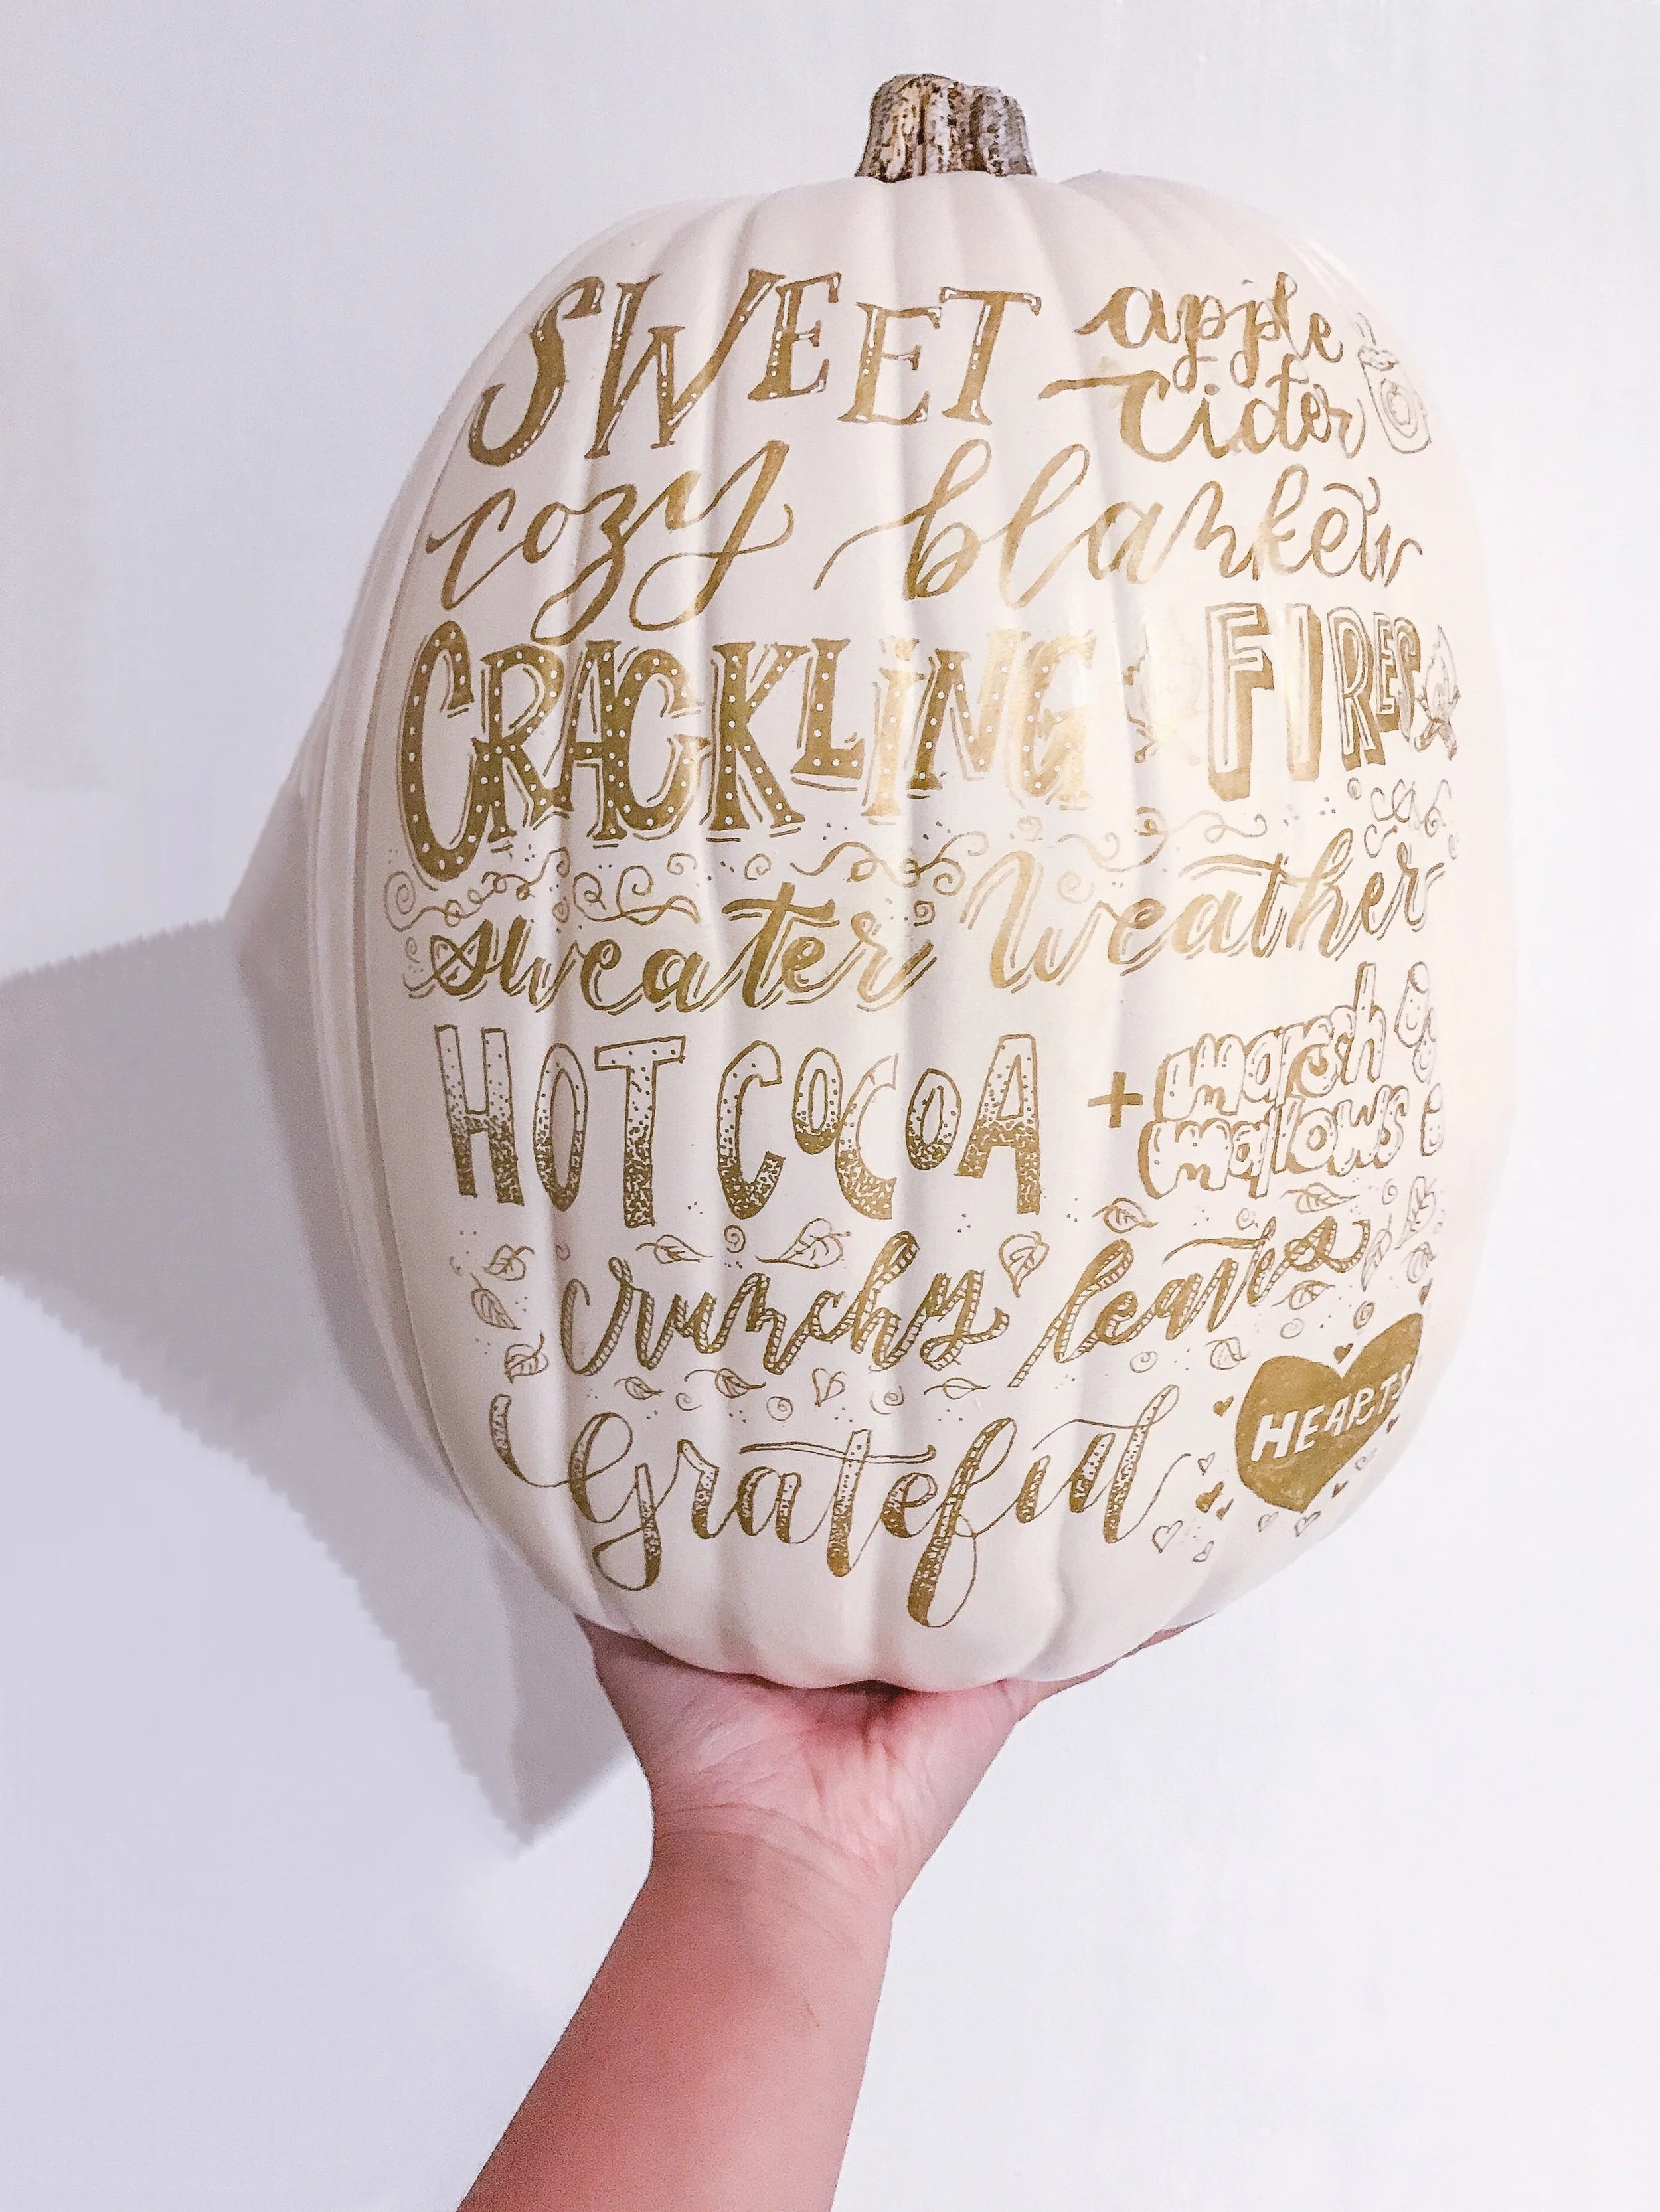 SWEET apple
cider
cozy blankets
CRACKLING FIRES
sweater weather
HOT COCOA + marsh
mallows
crunchy leaves
Grateful HEARTS